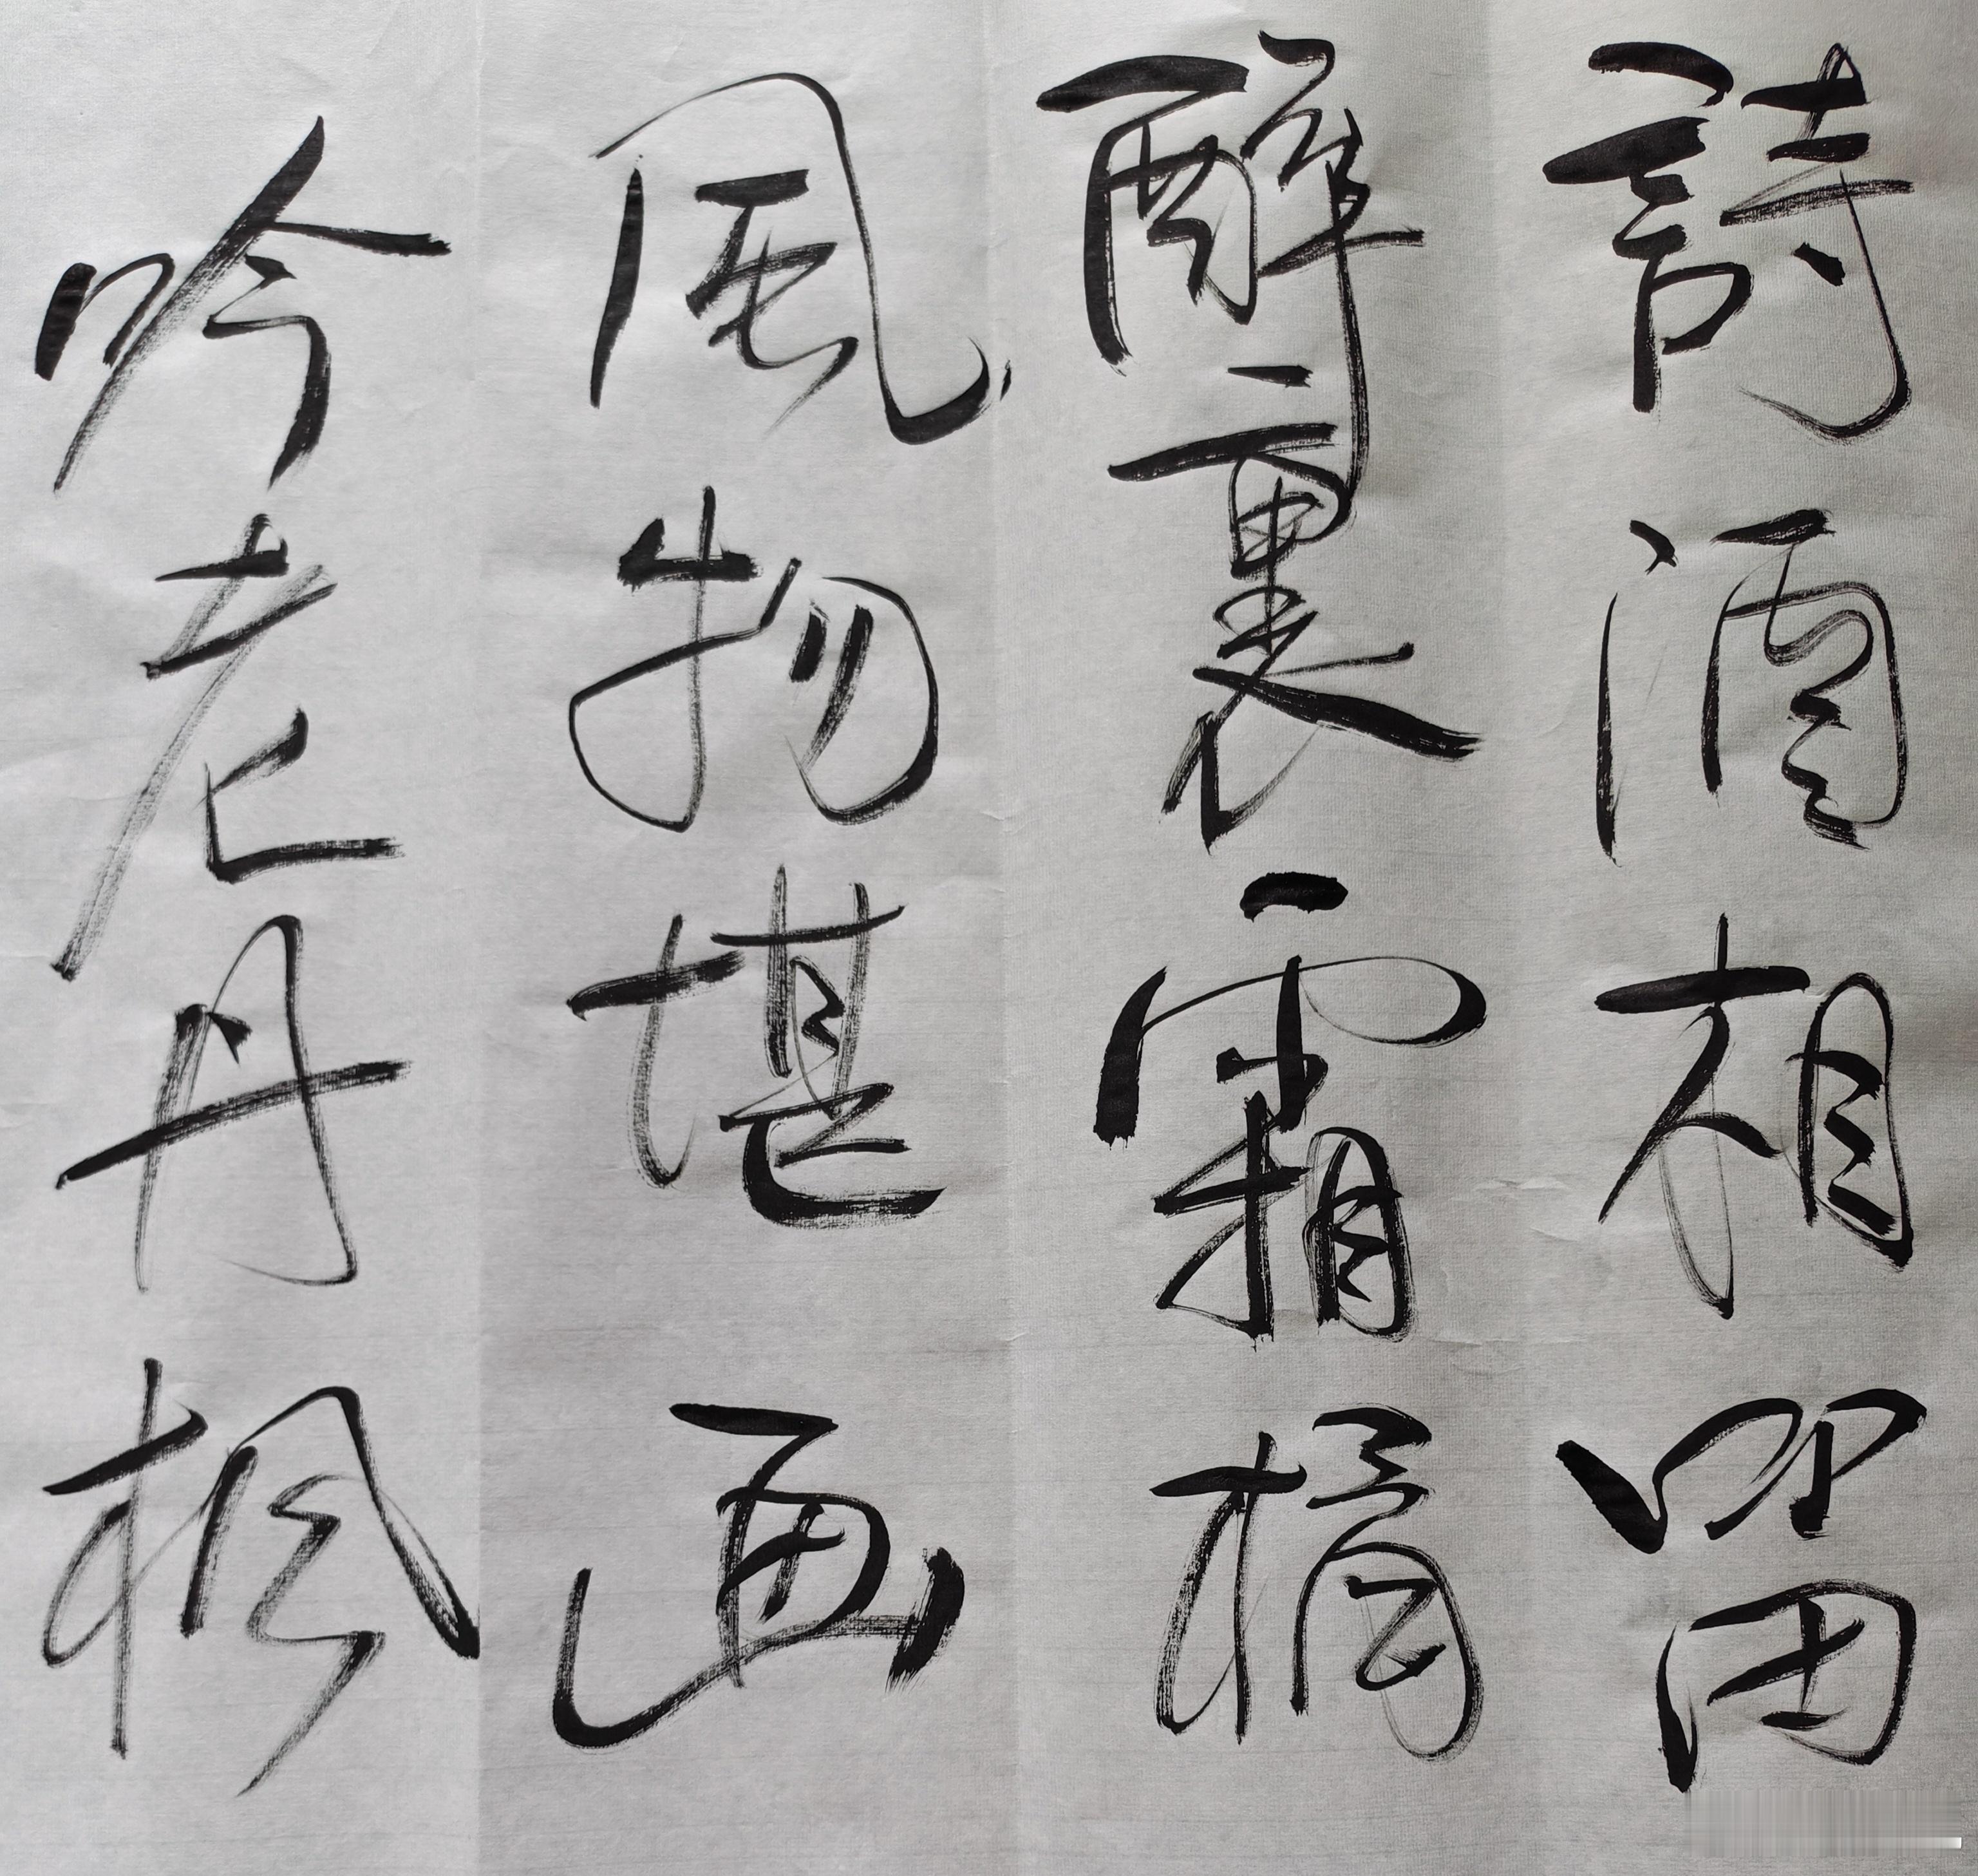 詩酒相留
醉裏霜橘
風物堪画
吟老丹楓